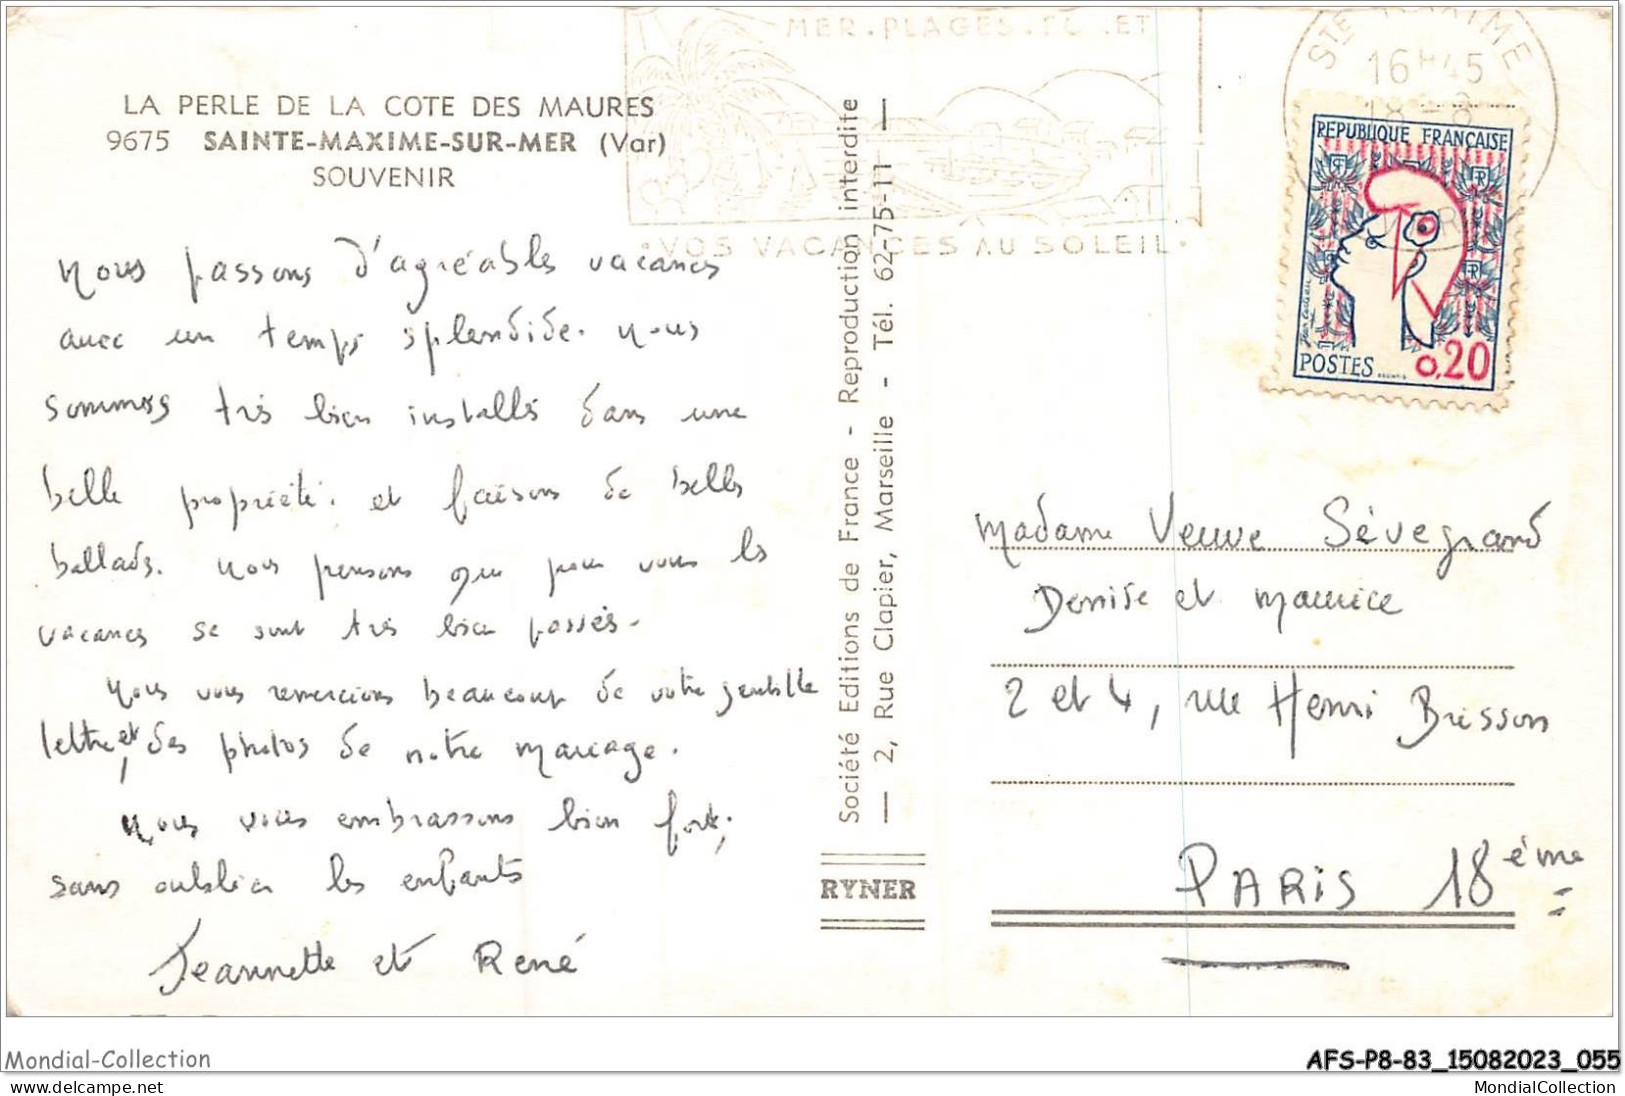 LA PERLE DE LA COTE DES MAURES
9675 SAINTE-MAXIME-SUR-MER (Var)
SOUVENIR
Nous passons d'agréables vacances
avec un temps splendide. Nous
sommes très bien installés dans une
belle propriété. et faisons de belles
ballades. Nous pensons que pour vous les
vacances se sont très bien passés.
Nous vous remercions beaucoup de votre gentille
lettre, et des photos de notre mariage.
Nous vous embrassons bien fort,
sans oublier les enfants
Jeannette et René
Société Editions de France - Reproduction interdite
— 2, Rue Clapier, Marseille - Tél. 62-75-11 —
RYNER
MER. PLAGES. ET
•VOS VACANCES AU SOLEIL•
STE MAXIME
16H45
18
REPUBLIQUE FRANÇAISE
RF
RF
RF
POSTES
0,20
Madame Veuve Sévegrand
Denise et Maurice
2 et 4, rue Henri Brisson
PARIS 18ème
Mondial-Collection
AFS-P8-83_15082023_055
www.delcampe.net
MondialCollection